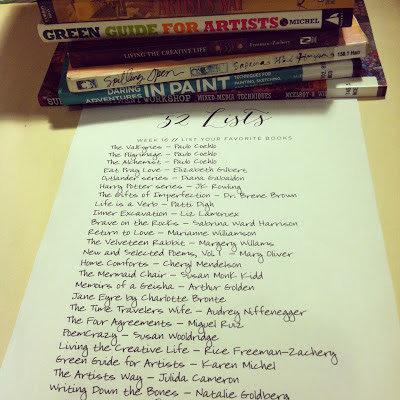 GREEN GUIDE FOR ARTISTS MICHEL
LIVING THE CREATIVE LIFE Freeman-Zachery
Spilling Open
DARING ADVENTURES IN PAINT TECHNIQUES FOR PAINTING, SKETCHING
WORKSHOP MIXED-MEDIA TECHNIQUES MCELROY & WI
52 Lists
WEEK 16 // LIST YOUR FAVORITE BOOKS
The Valkyries – Paulo Coehlo
The Pilgrimage – Paulo Coehlo
The Alchemist – Paulo Coehlo
Eat Pray Love – Elizabeth Gilbert
Outlander series – Diana Gabaldon
Harry Potter series – JK Rowling
The Gifts of Imperfection – Dr. Brene Brown
Life is a Verb – Patti Digh
Inner Excavation – Liz Lamoreux
Brave on the Rocks – Sabrina Ward Harrison
Return to Love – Marianne Williamson
The Velveteen Rabbit – Margery Williams
New and Selected Poems, Vol. 1 – Mary Oliver
Home Comforts – Cheryl Mendelson
The Mermaid Chair – Susan Monk Kidd
Memoirs of a Geisha – Arthur Golden
Jane Eyre by Charlotte Bronte
The Time Travelers Wife – Audrey Niffenegger
The Four Agreements – Miguel Ruiz
PoemCrazy – Susan Wooldridge
Living the Creative Life – Rice Freeman-Zachery
Green Guide for Artists – Karen Michel
The Artists Way – Julida Cameron
Writing Down the Bones – Natalie Goldberg